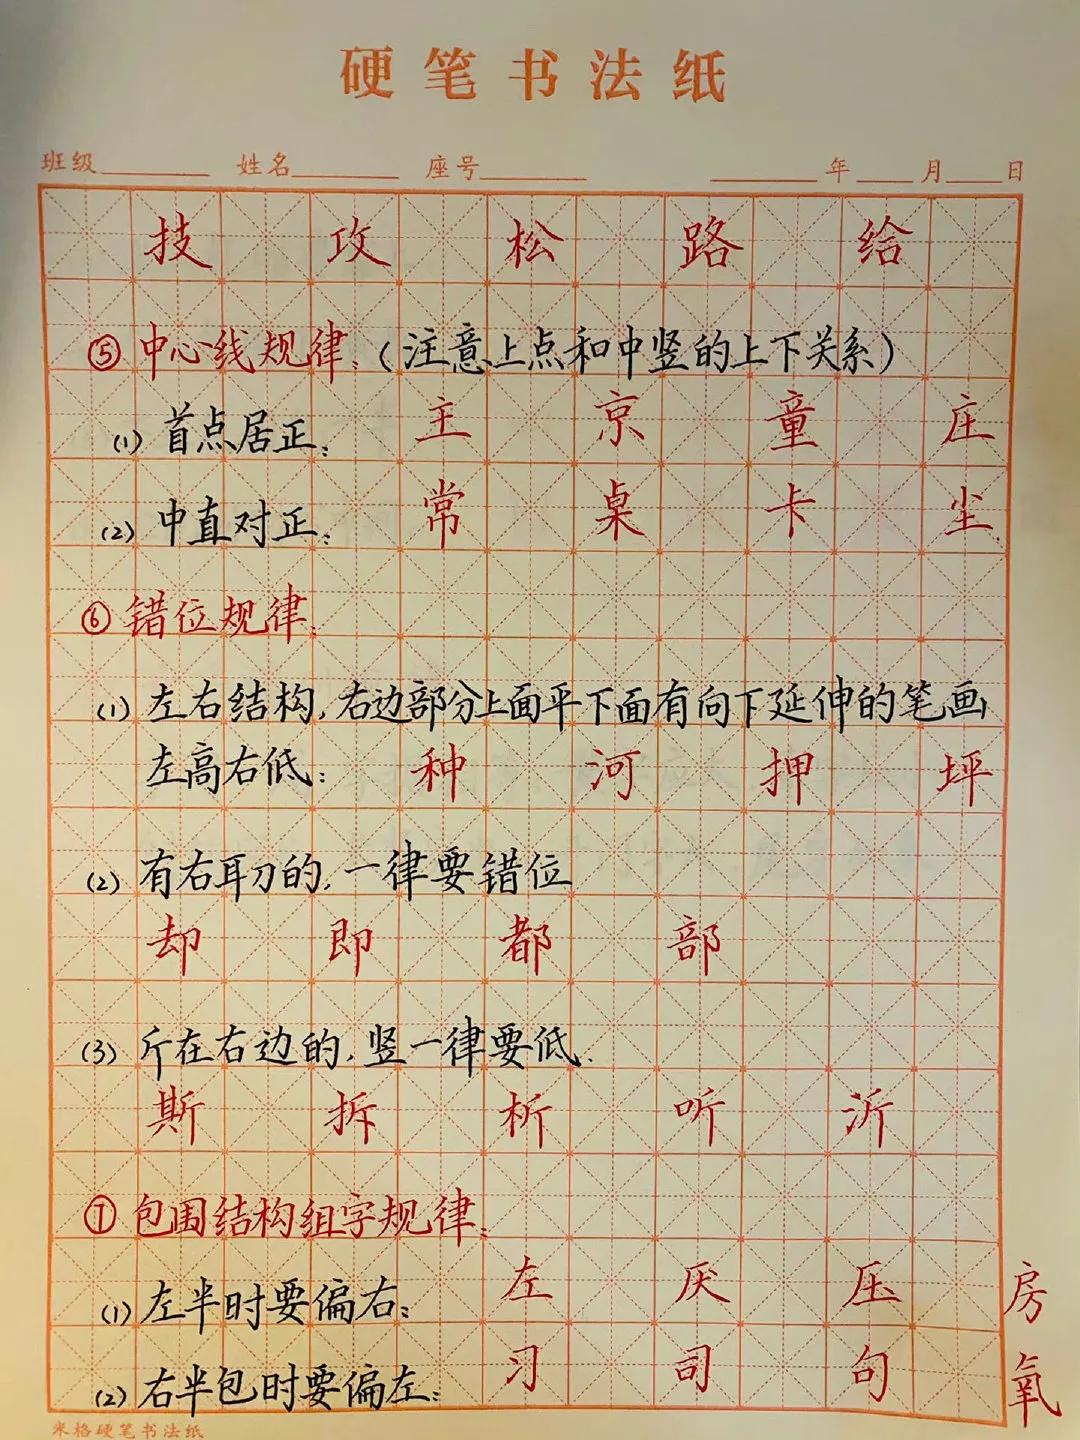 硬笔书法纸
班级 姓名 座号 年 月 日
技 攻 松 路 给
⑤中心线规律:(注意上点和中竖的上下关系)
(1)首点居正: 主 京 童 庄
(2)中直对正: 常 桌 卡 尘.
⑥错位规律:
(1)左右结构,右边部分上面平下面有向下延伸的笔画
左高右低: 种 河 押 坪
(2)有右耳刀的,一律要错位
却 即 都 部
(3)斤在右边的,竖一律要低.
斯 拆 析 听 沂
⑦包围结构组字规律:
(1)左半时要偏右: 左 厌 压 房
(2)右半包时要偏左: 习 司 句 氧
米格硬笔书法纸